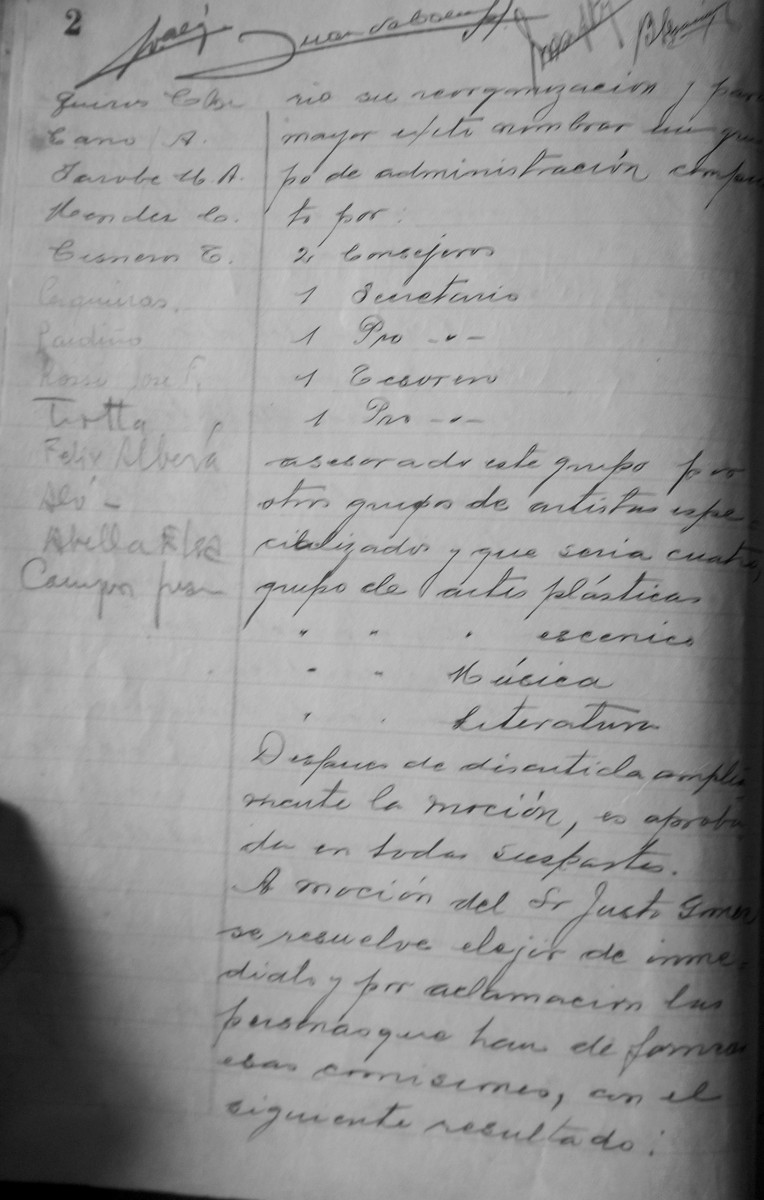 2
Quiros
Cano A.
Tarobe M. A.
Mendez C.
Cisneros T.
Cerquieras.
Pardiño
Rossi Jose P.
Trotta
Felix Alberá
Aló -
Abella
Campos
rio su reorganización y para
mayor exito nombrar un gru
po de administración compues
to por:
2 Consejeros
1 Secretario
1 Pro -"-
1 Tesorero
1 Pro -"-
asesorado este grupo por
otros grupos de artistas espe-
cializados y que seria cuatro,
grupo de artes plásticas
" " " escenico
" " Música
" " Literatura
Despues de discutida amplia
mente la moción, es aproba
da en todas sus partes.
A moción del Sr Justo Gomez
se resuelve elejir de inme-
diato y por aclamacion las
personas que han de formar
esas comisiones, con el
siguiente resultado: